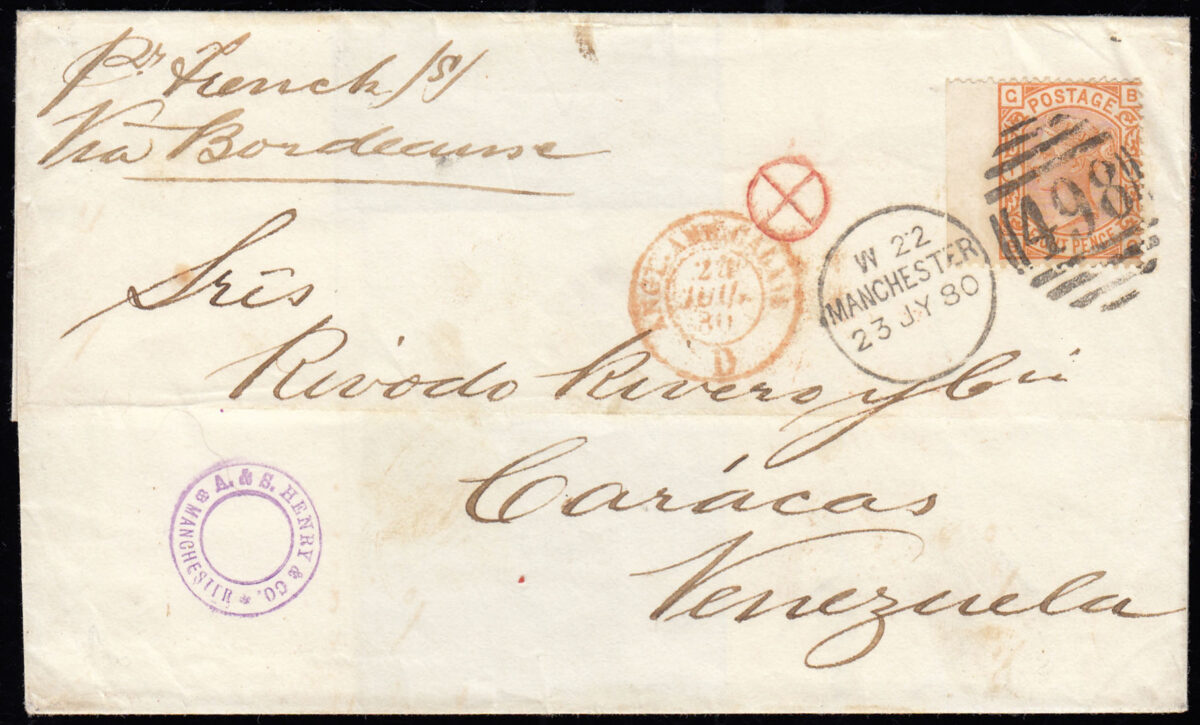 pr French /S/
Via Bordeaux
Srés
Rivodo Rivero y Cía
Carácas
Venezuela
G B
POSTAGE
PENCE
498
W 22
MANCHESTER
23 JY 80
CALAIS
JUIL
80
D
A. & S. HENRY & CO.
MANCHESTER